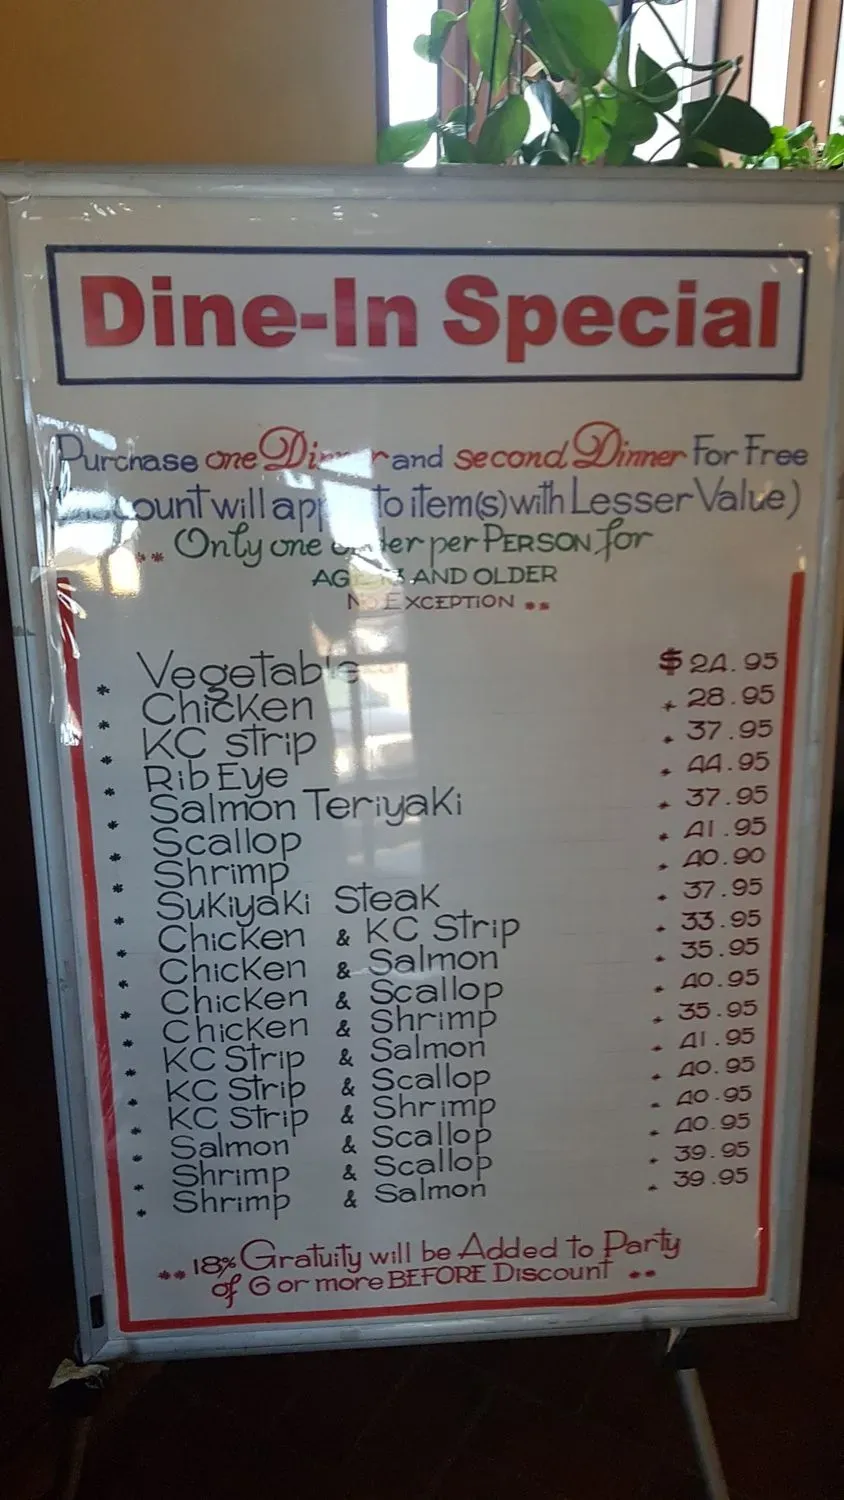 Dine-In Special
Purchase one Dinner and second Dinner For Free
(Discount will apply to item(s) with Lesser Value)
** Only one order per PERSON for
AGE AND OLDER
NO EXCEPTION **
* Vegetable $ 24.95
* Chicken 28.95
* KC strip 37.95
* Rib Eye 44.95
* Salmon Teriyaki 37.95
* Scallop 41.95
* Shrimp 40.90
* Sukiyaki Steak 37.95
* Chicken & KC Strip 33.95
* Chicken & Salmon 35.95
* Chicken & Scallop 40.95
* Chicken & Shrimp 35.95
* KC Strip & Salmon 41.95
* KC Strip & Scallop 40.95
* KC Strip & Shrimp 40.95
* Salmon & Scallop 40.95
* Shrimp & Scallop 39.95
* Shrimp & Salmon 39.95
** 18% Gratuity will be Added to Party
of 6 or more BEFORE Discount **